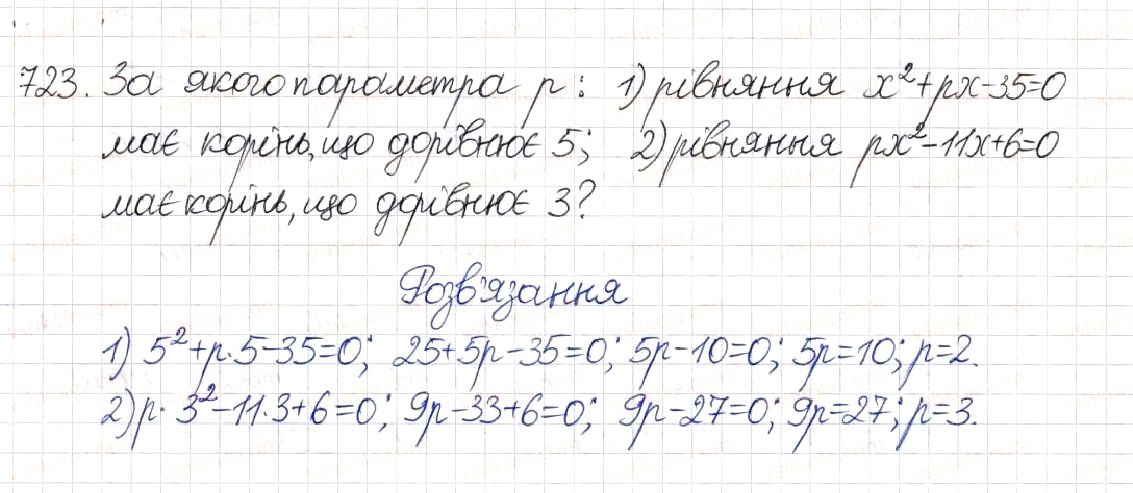 723. За якого параметра p: 1) рівняння x²+px-35=0
має корінь, що дорівнює 5; 2) рівняння px²-11x+6=0
має корінь, що дорівнює 3?
Розв'язання
1) 5²+p·5-35=0; 25+5p-35=0; 5p-10=0; 5p=10; p=2.
2) p·3²-11·3+6=0; 9p-33+6=0; 9p-27=0; 9p=27; p=3.